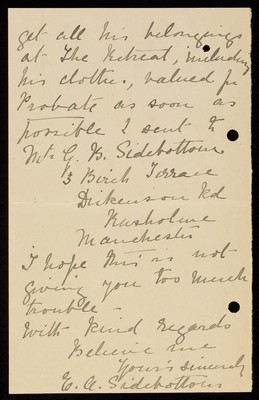 get all his belongings
at The Retreat, including
his clothes, valued for
Probate as soon as
possible & sent to
Mrs G. B. Sidebottom
3 Birch Terrace
Dickenson Rd
Rusholme
Manchester
I hope this is not
giving you too much
trouble –
With kind regards
Believe me
Yours sincerely
E. A. Sidebottom